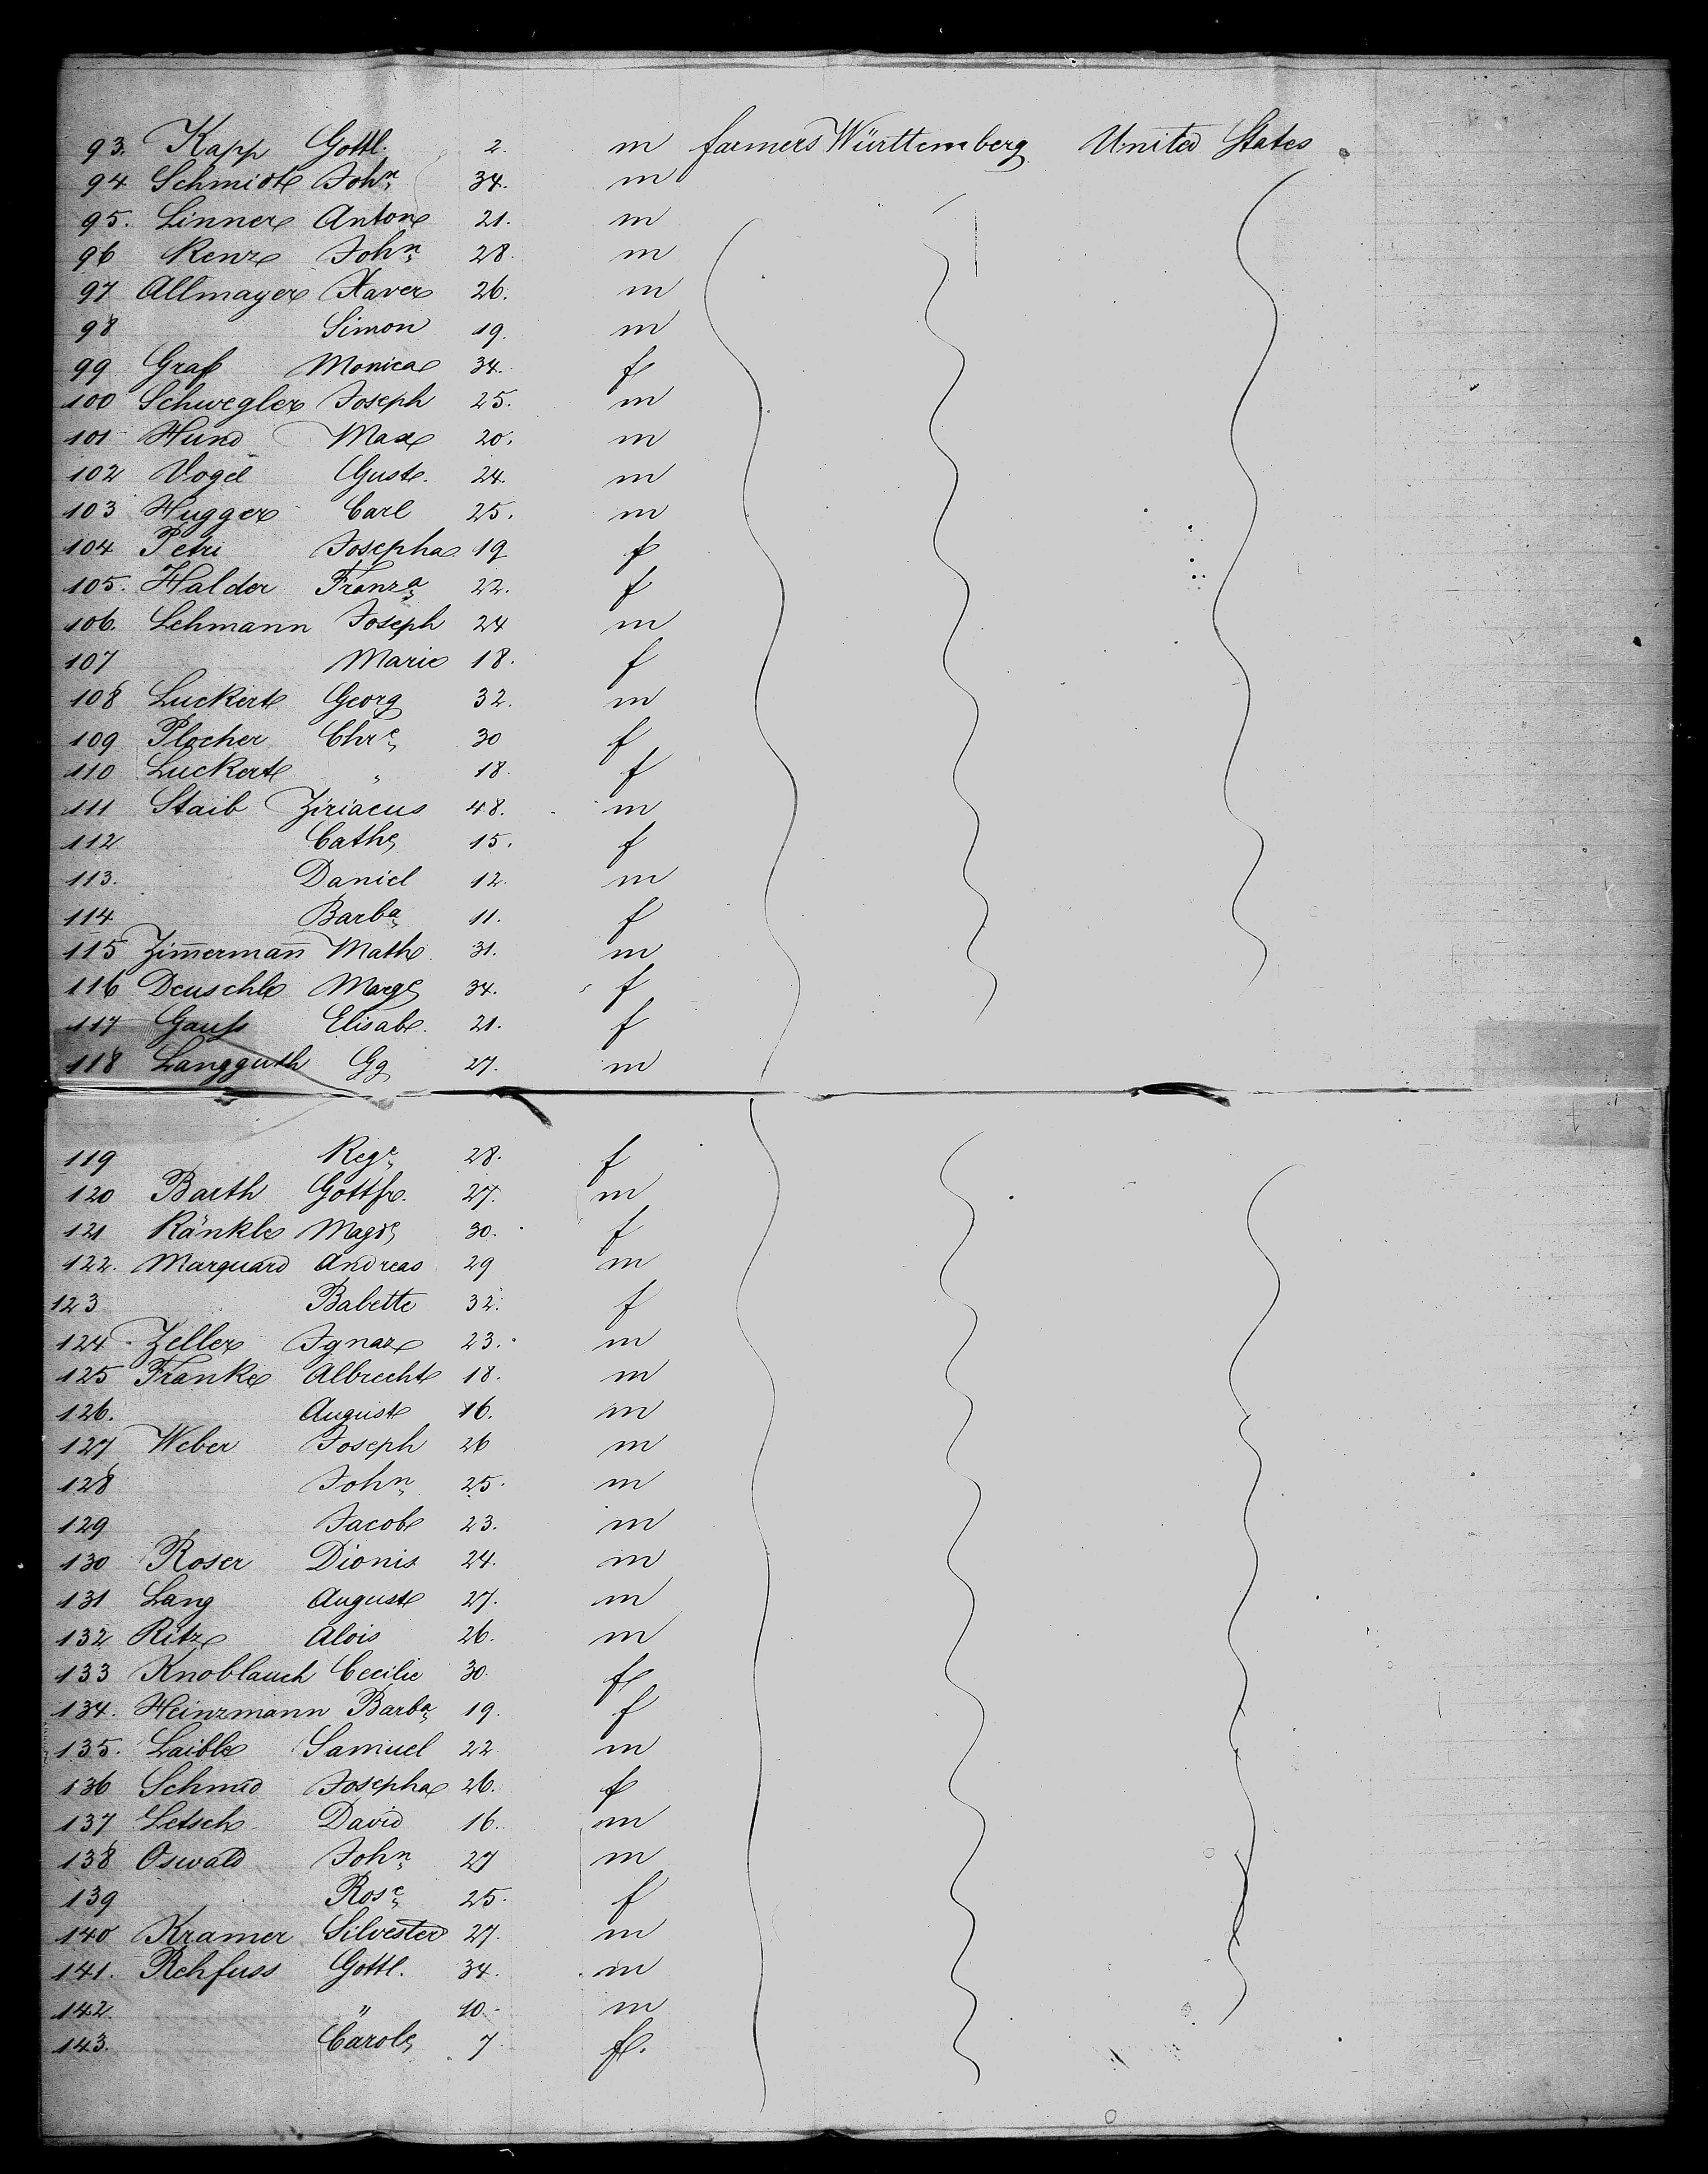 93. Kapp Gottl. 2. m farmers Württemberg United States
94 Schmidt Johⁿ 34. m
95. Linner Anton 21. m
96 Renz Johⁿ 28. m
97 Allmayer Xaver 26. m
98 Simon 19. m
99 Graf Monica 34. f
100 Schwegler Joseph 25. m
101 Hund Max 20. m
102 Vogel Gust. 24. m
103 Hugger Carl 25. m
104 Petri Josepha 19 f
105. Halder Franzᵃ 22. f
106. Lehmann Joseph 24 m
107 Marie 18. f
108 Luckert Georg 32. m
109 Plocher Chrᵉ 30 f
110 Luckert " 18. f
111 Staib Ziriacus 48. m
112 Cathe 15. f
113. Daniel 12. m
114 Barbᵃ 11. f
115 Zim̄erman̄ Math. 31. m
116 Deuschle Marge 34. f
117 Gauß Elisab. 21. f
118 Langguth Gg 27. m
119 Regᵉ 28. f
120 Barth Gottfr. 27. m
121 Ränkle Magde 30. f
122. Marquard Andreas 29 m
123 Babette 32. f
124 Zeller Ignaz 23. m
125 Franke Albrecht 18. m
126. August 16. m
127 Weber Joseph 26 m
128 Johⁿ 25. m
129 Jacob 23. m
130 Roser Dionis 24. m
131 Lang August 27. m
132 Ritz Alois 26. m
133 Knoblauch Cecilie 30. f
134. Heinzmann Barbᵃ 19. f
135. Laible Samuel 22 m
136 Schmid Josepha 26. f
137 Letsch David 16. m
138 Oswald Johⁿ 27 m
139 Rosᵉ 25. f
140 Kramer Silvester 27. m
141. Rehfuss Gottl. 34. m
142. " 10. m
143. Carole 7 f.